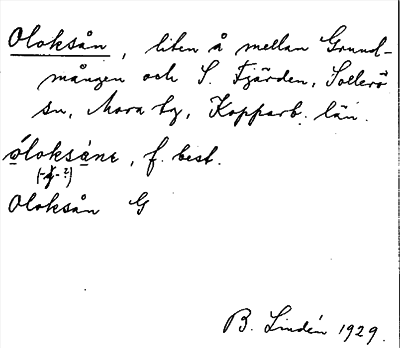 Oloksån, liten å mellan Grund-
mången och S. Fjärden, Sollerö
sn, Mora tg, Kopparb. län.
óloksåne, f. best.
Oloksån G
B. Lindén 1929.